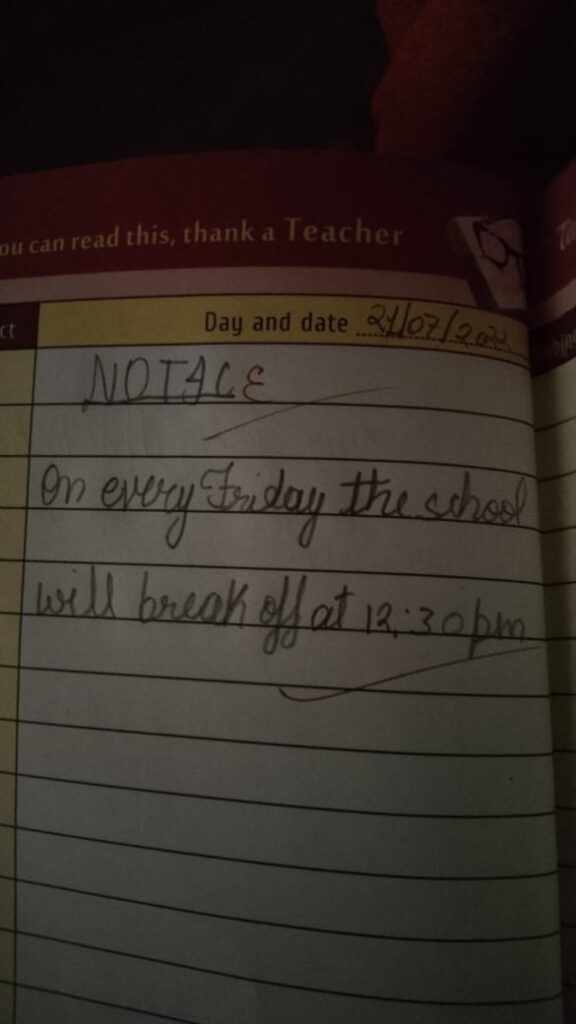 ou can read this, thank a Teacher
ct
Day and date
NOTICE
On every Friday the school
will break off at 12:30pm